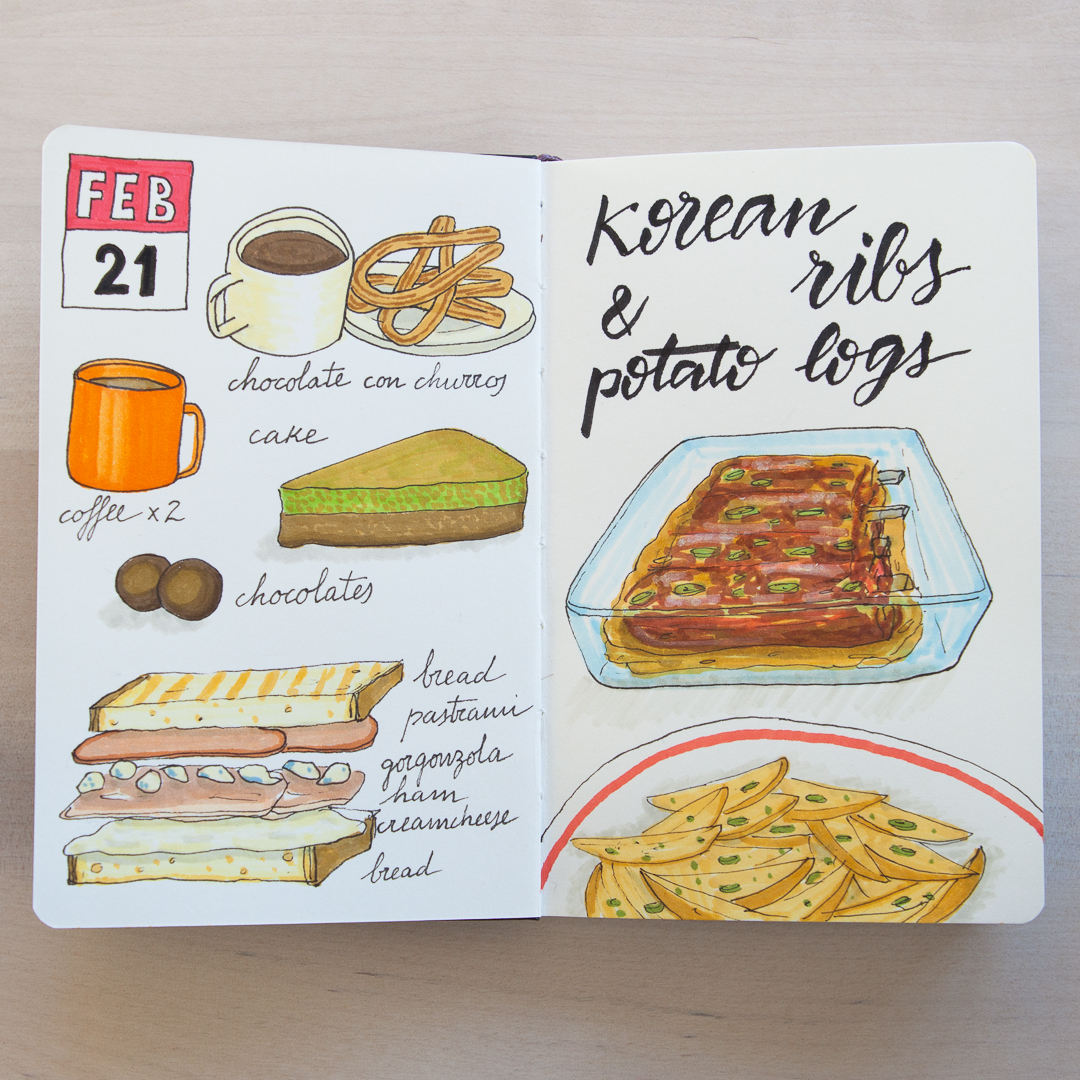 FEB
21
chocolate con churros
cake
coffee x2
chocolates
bread
pastrami
gorgonzola
ham
creamcheese
bread
Korean
ribs
&
potato logs